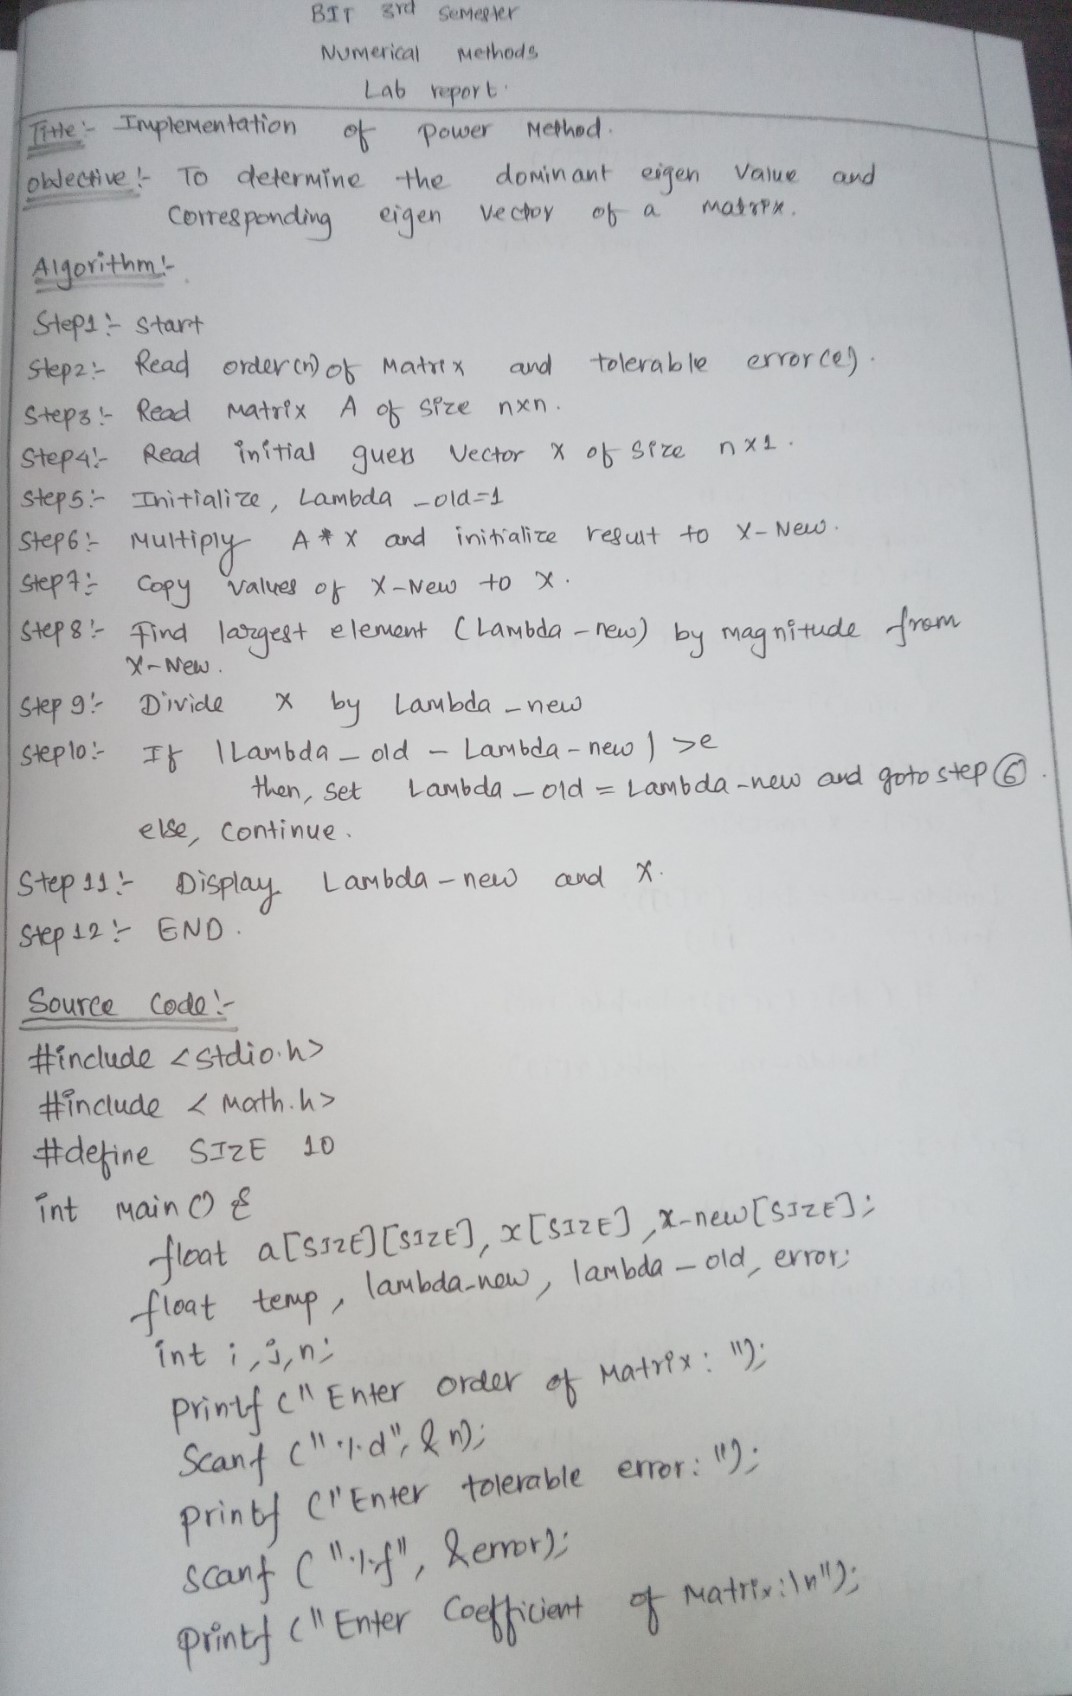 BIT 3rd Semester
Numerical Methods
Lab report.
Title:- Implementation of power Method.
Objective:- To determine the dominant eigen value and
Corresponding eigen vector of a matrix.
Algorithm:-
Step1:- Start
Step2:- Read order(n) of Matrix and tolerable error(e).
Step3:- Read Matrix A of size nxn.
Step4:- Read initial guess Vector X of size nx1.
Step5:- Initialize, Lambda_old=1
Step6:- Multiply A*X and initialize result to X-New.
Step7:- Copy values of X-New to X.
Step8:- Find largest element (Lambda-new) by magnitude from
X-New.
Step 9:- Divide X by Lambda_new
Step10:- If |Lambda_old - Lambda-new| >e
then, set Lambda_old = Lambda-new and goto step ⑥.
else, continue.
Step 11:- Display Lambda-new and X.
Step 12:- END.
Source Code:-
#include <stdio.h>
#include <Math.h>
#define SIZE 10
int main() {
float a[SIZE][SIZE], x[SIZE], x-new[SIZE];
float temp, lambda-new, lambda-old, error;
int i,j,n;
printf ("Enter order of Matrix: ");
Scanf ("%d", &n);
printf ("Enter tolerable error: ");
scanf ("%f", &error);
printf ("Enter Coefficient of Matrix:\n");